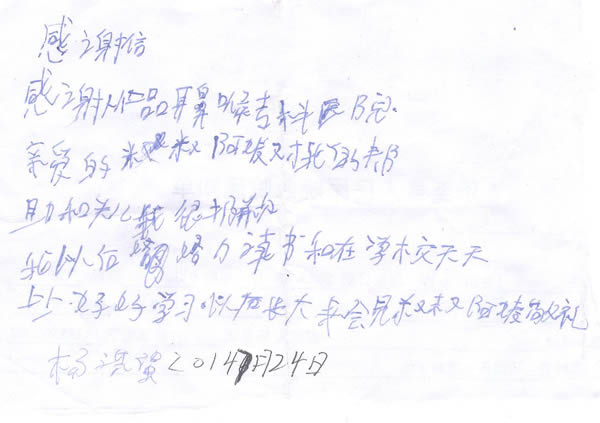 感谢信
感谢仁品耳鼻喉专科医院.
亲爱的 叔叔阿姨对我的帮
助和关心我很感
我以后 努力读书和在学校天天
上上好好学习以后长大来会见叔叔阿姨敬礼
杨洪 2014 7月24日